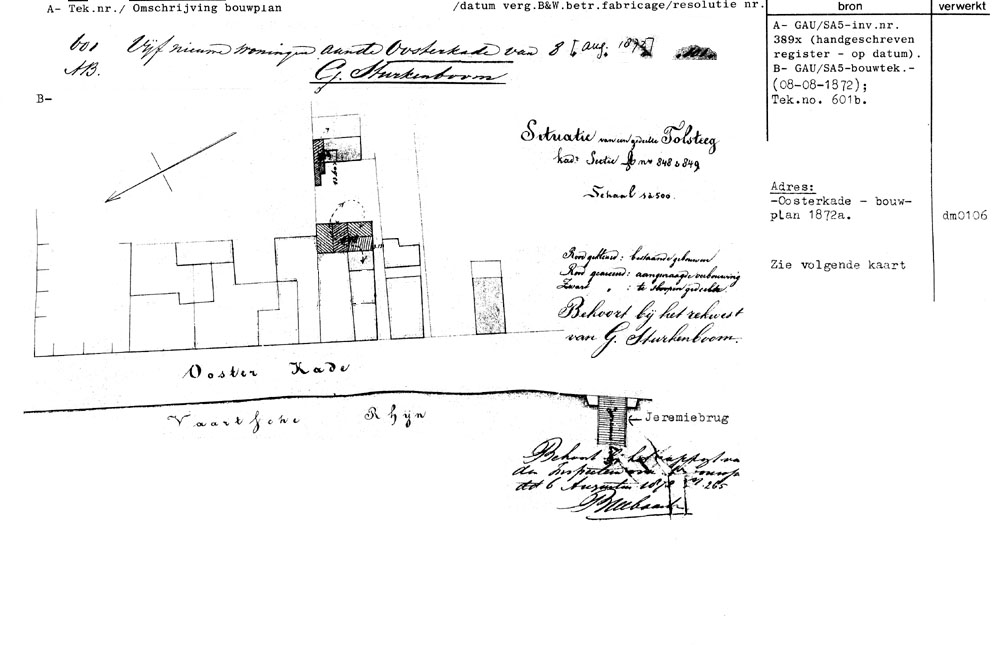 A- Tek.nr./ Omschrijving bouwplan /datum verg.B&W.betr.fabricage/resolutie nr.
bron
verwerkt
601 Vijf nieuwe woningen aan de Oosterkade van 8 [aug. 1872]
AB. G. Sturkenboom
A- GAU/SA5-inv.nr.
389x (handgeschreven
register - op datum).
B- GAU/SA5-bouwtek.-
(08-08-1872);
Tek.no. 601b.
B-
Situatie van een gedeelte Tolsteeg
kad. Sectie nos 848 & 849
Schaal 1 à 2500.
Adres:
-Oosterkade - bouw-
plan 1872a.
dm0106
Zie volgende kaart
Rood gekleurd: bestaande gebouwen
Rood gearceerd: aangevraagde verbouwing
Zwart " : te sloopen gedeelte
Behoort bij het rekwest
van G. Sturkenboom.
Ooster Kade
Vaartsche Rhijn
Jeremiebrug
Behoort bij het rapport van
den Inspecteur
dd 6 Augustus 1872 No. 265